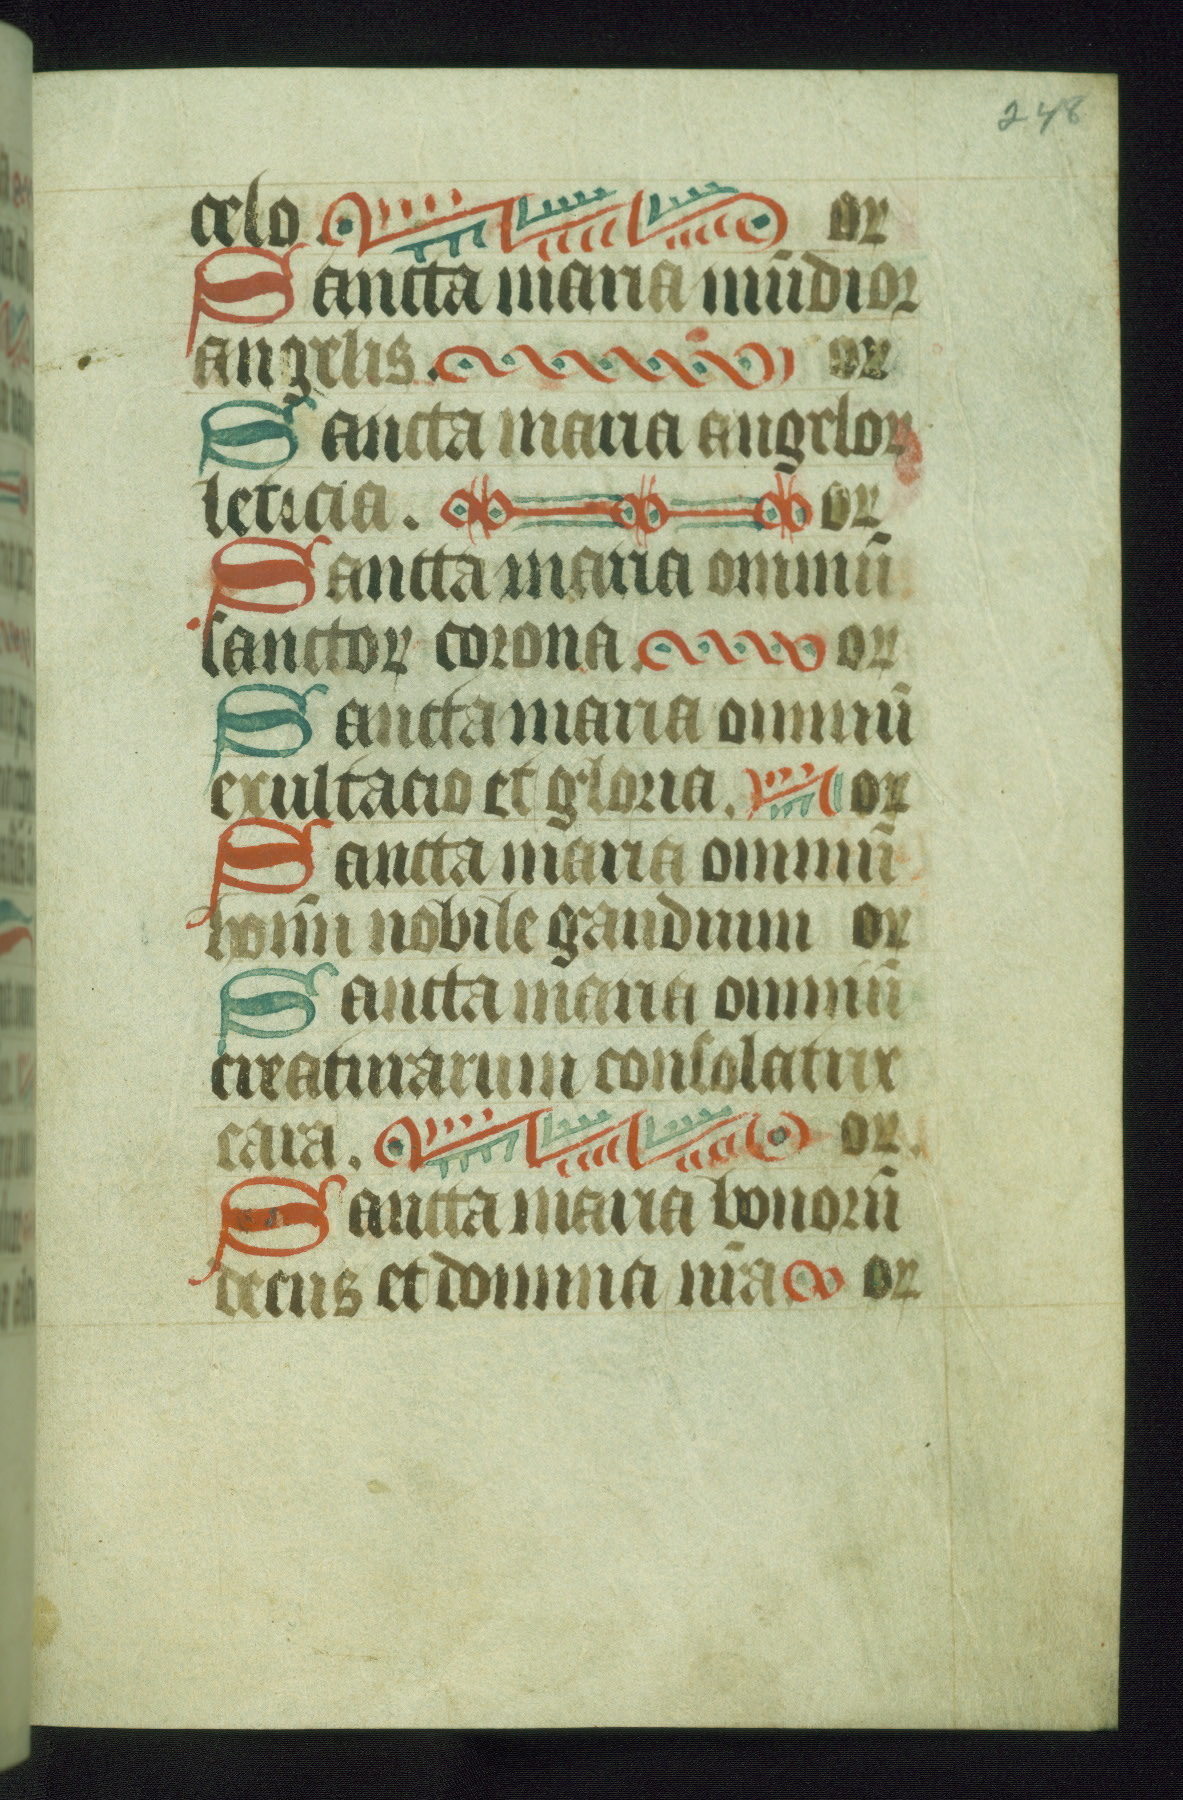 248
celo. or
Sancta maria mūdior
angelis. or
Sancta maria angelor
leticia. or
Sancta maria omniū
sanctor corona. or
Sancta maria omniū
exultacio et gloria. or
Sancta maria omniū
hoīm nobile gaudium or
Sancta maria omniū
creaturarum consolatrix
cara. or.
Sancta maria bonorū
decus et domina nr̄a or